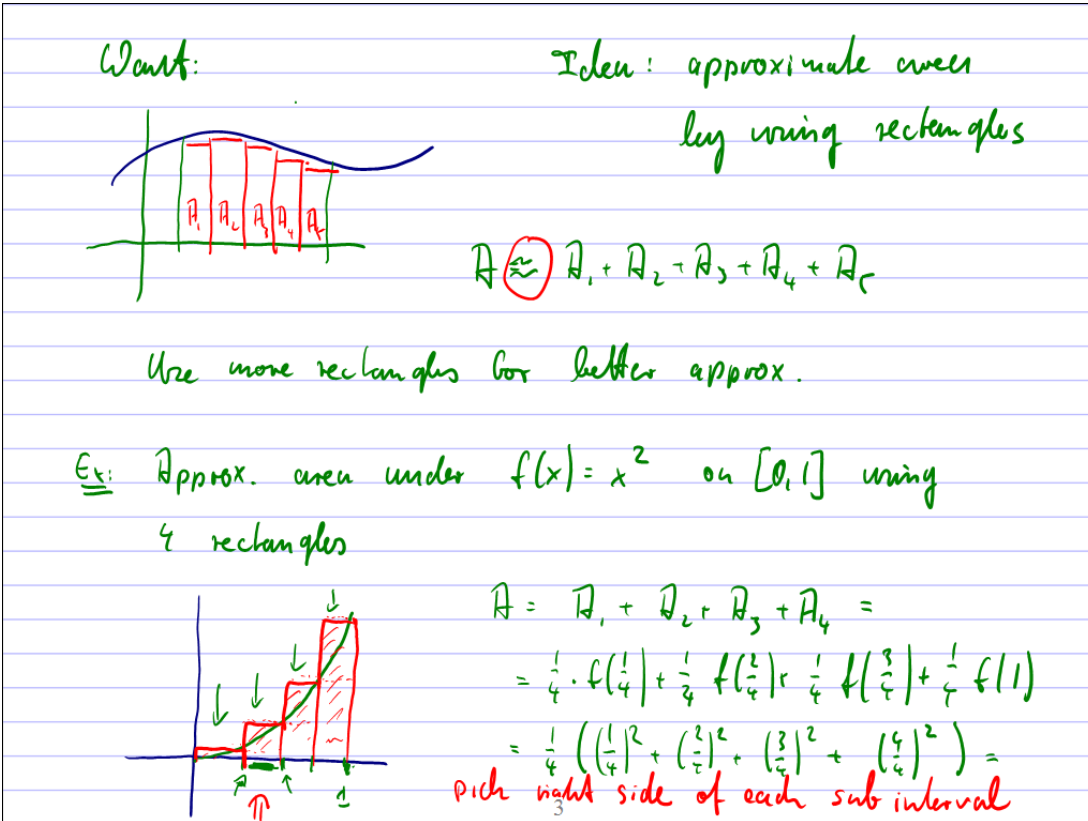 Want:
Idea: approximate area
by using rectangles
A₁ A₂ A₃ A₄ A₅
A ≈ A₁ + A₂ + A₃ + A₄ + A₅
Use more rectangles for better approx.
Ex: Approx. area under f(x) = x² on [0,1] using
4 rectangles
A = A₁ + A₂ + A₃ + A₄ =
= 1/4 · f(1/4) + 1/4 f(2/4) + 1/4 f(3/4) + 1/4 f(1)
= 1/4 ((1/4)² + (2/4)² + (3/4)² + (4/4)²) =
1
pick right side of each sub interval
3